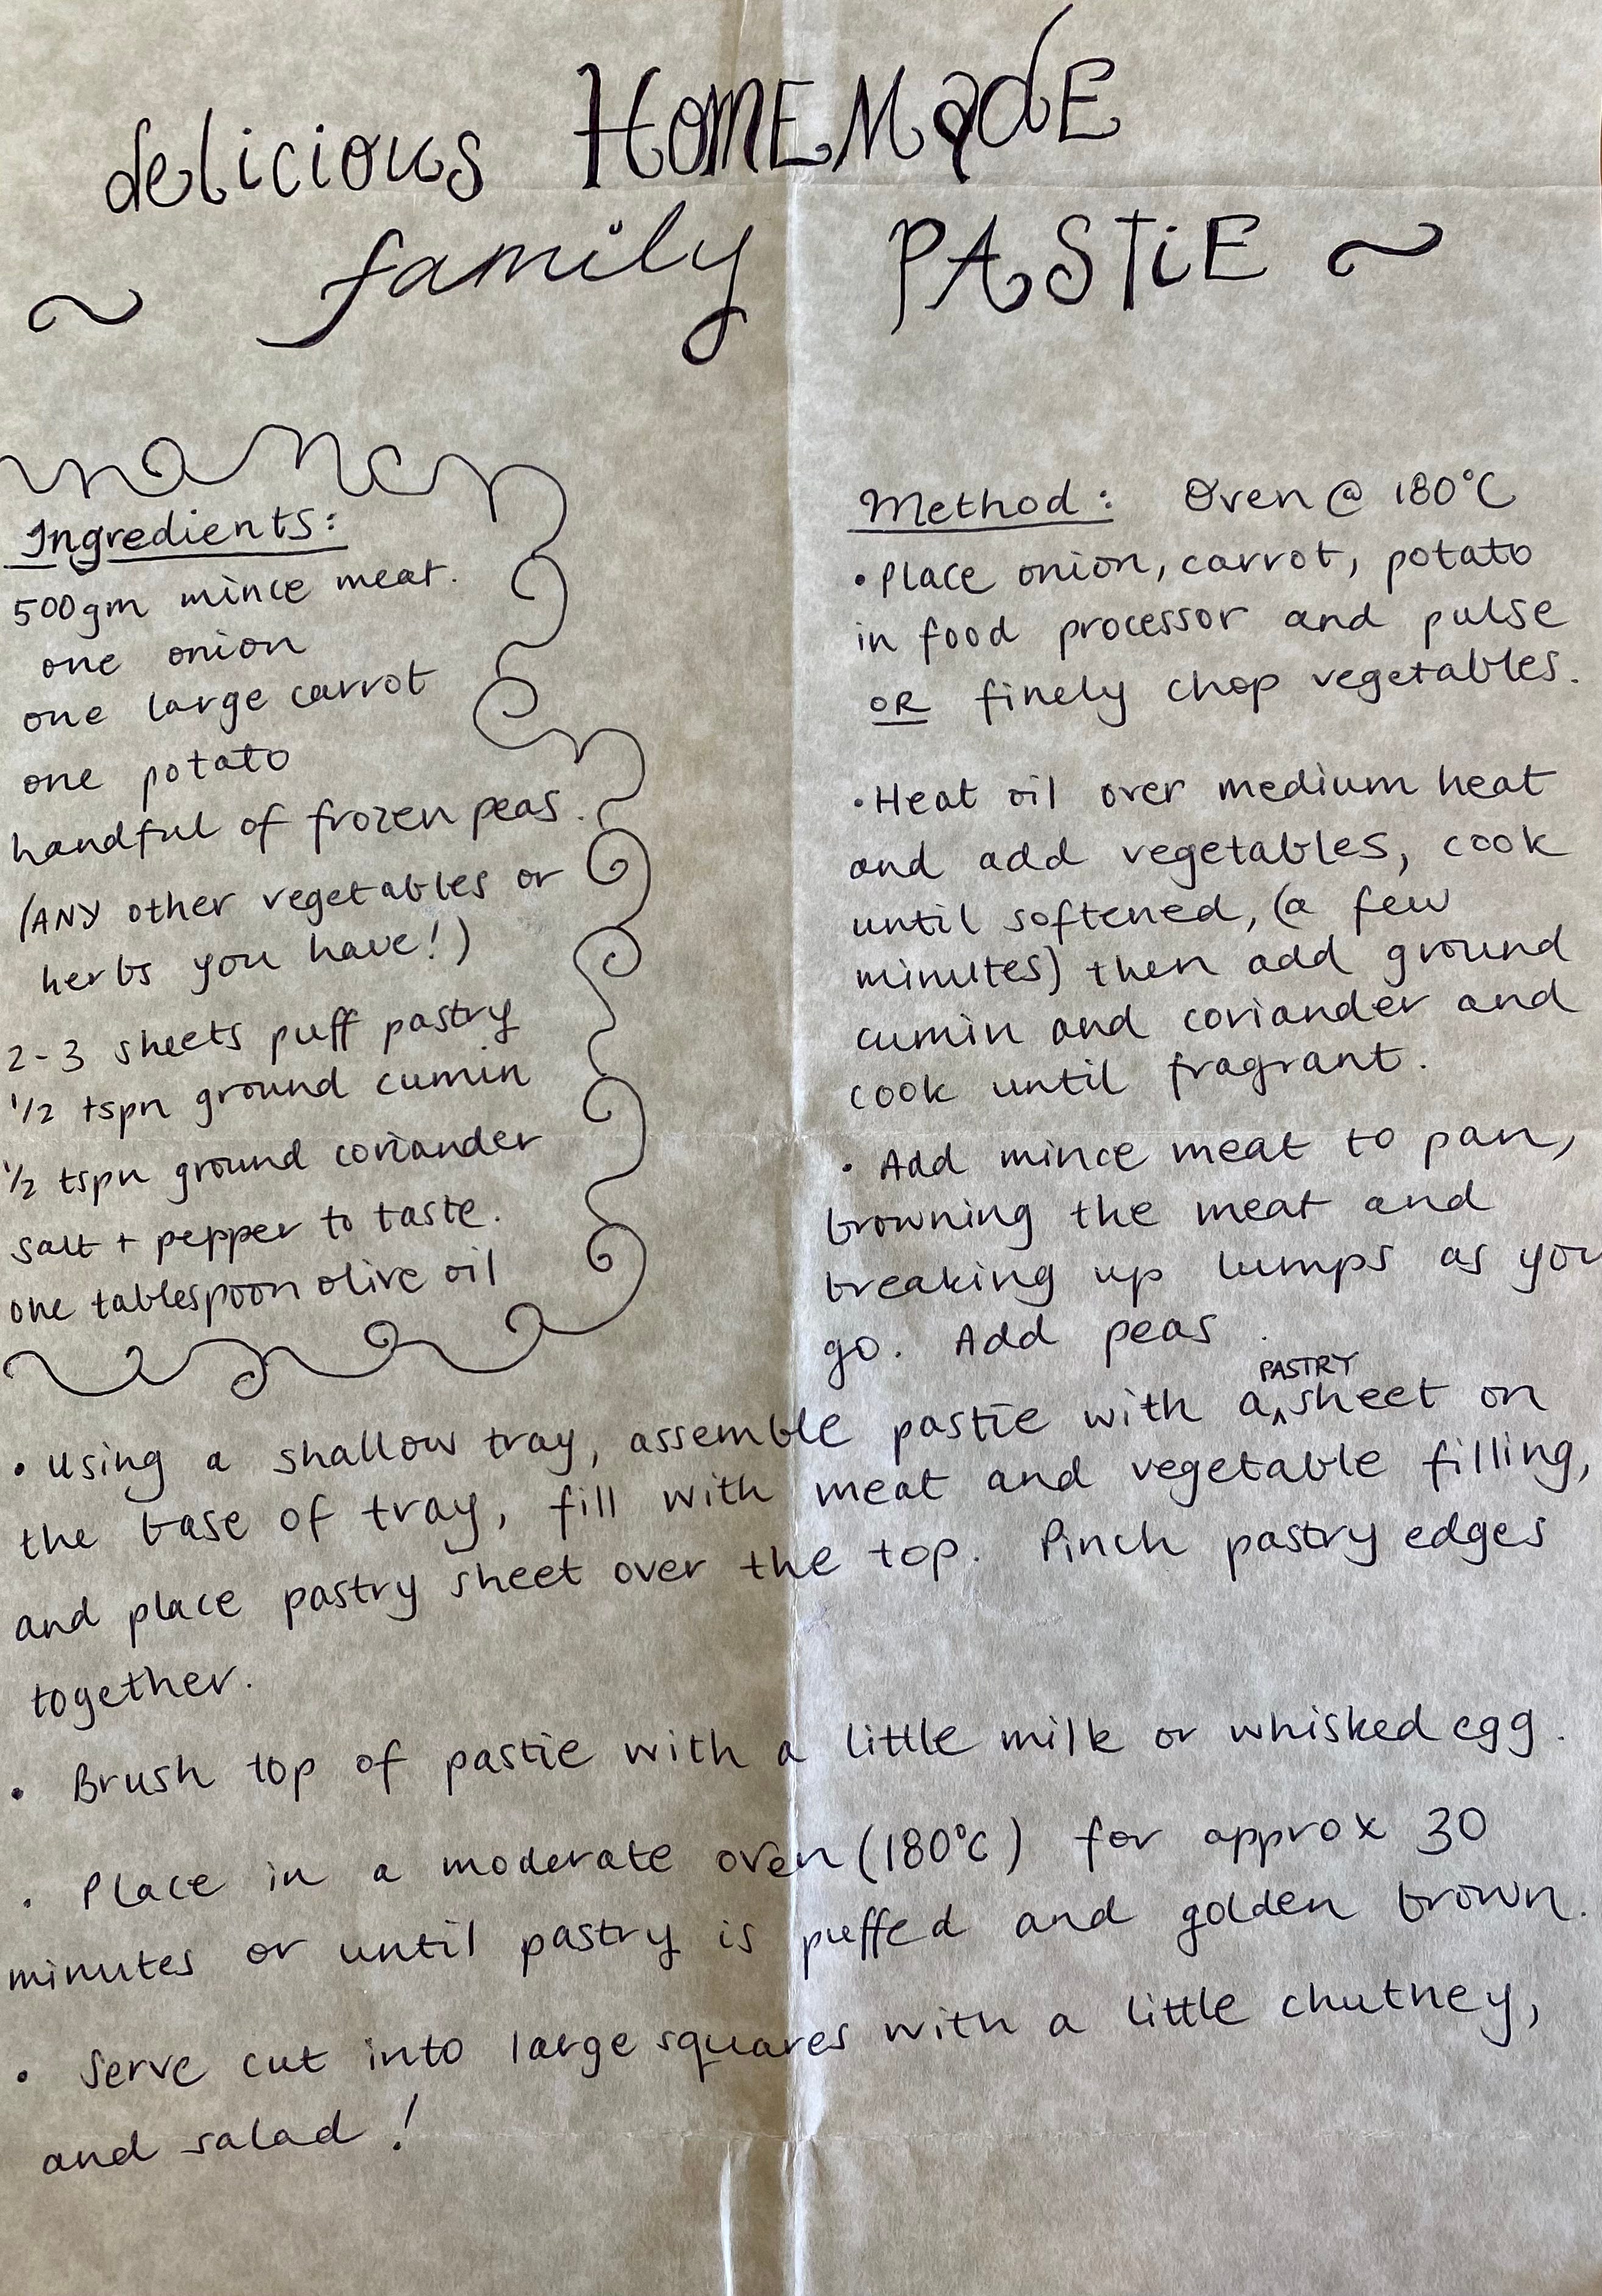 delicious HOMEMadE
~ family PASTiE ~
Ingredients:
500gm mince meat.
one onion
one large carrot
one potato
handful of frozen peas.
(ANY other vegetables or
herbs you have!)
2-3 sheets puff pastry
1/2 tspn ground cumin
1/2 tspn ground coriander
salt + pepper to taste.
one tablespoon olive oil
Method: Oven @ 180°C
• Place onion, carrot, potato
in food processor and pulse
OR finely chop vegetables.
• Heat oil over medium heat
and add vegetables, cook
until softened, (a few
minutes) then add ground
cumin and coriander and
cook until fragrant.
• Add mince meat to pan,
browning the meat and
breaking up lumps as you
go. Add peas.
• Using a shallow tray, assemble pastie with a PASTRY sheet on
the base of tray, fill with meat and vegetable filling,
and place pastry sheet over the top. Pinch pastry edges
together.
• Brush top of pastie with a little milk or whisked egg.
• Place in a moderate oven (180°C) for approx 30
minutes or until pastry is puffed and golden brown.
• Serve cut into large squares with a little chutney,
and salad!